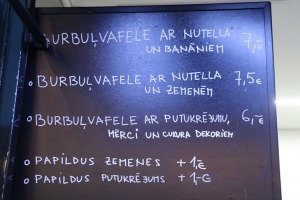 BURBUĻVAFELE AR NUTELLA 7,-€
UN BANĀNIEM
○ BURBUĻVAFELE AR NUTELLA 7,5€
UN ZEMENĒM
○ BURBUĻVAFELE AR PUTUKRĒJUMU, 6,-€
MĒRCI UN CUKURA DEKORIEM
○ PAPILDUS ZEMENES +1,-€
○ PAPILDUS PUTUKRĒJUMS +1,-€